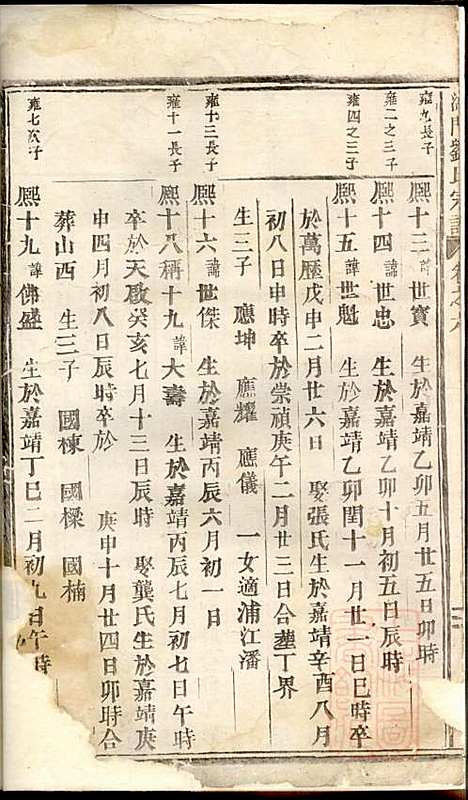 劉氏宗譜
雍九長子
熙十二諱世寶 生於嘉靖乙卯五月廿五日卯時
雍二之三子
熙十四諱世忠 生於嘉靖乙卯十月初五日辰時
雍四之三子
熙十五諱世魁 生於嘉靖乙卯閏十一月廿一日巳時卒
於萬歷戊申二月廿六日 娶張氏生於嘉靖辛酉八月
初八日申時卒於崇禎庚午二月廿三日合塟丁界
生三子 應坤 應耀 應儀 一女適浦江潘
雍十三長子
熙十六諱世傑 生於嘉靖丙辰六月初一日
雍十一長子
熙十八稱十九諱大壽 生於嘉靖丙辰七月初七日午時
卒於天啟癸亥七月十三日辰時 娶龔氏生於嘉靖庚
申四月初八日辰時卒於 庚申十月廿四日卯時合
葬山西 生三子 國棟 國樑 國楠
雍七次子
熙十九諱佛盛 生於嘉靖丁巳二月初九日午時